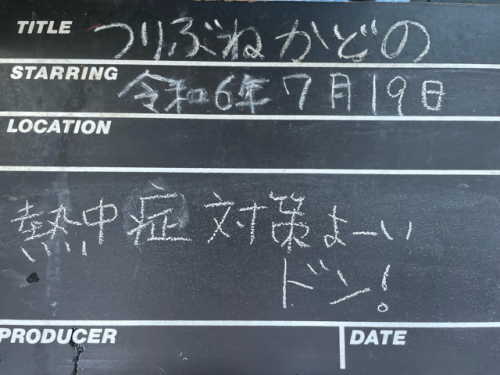 TITLE つりぶねかどの
STARRING 令和6年7月19日
LOCATION
熱中症対策よーい
ドン!
PRODUCER DATE